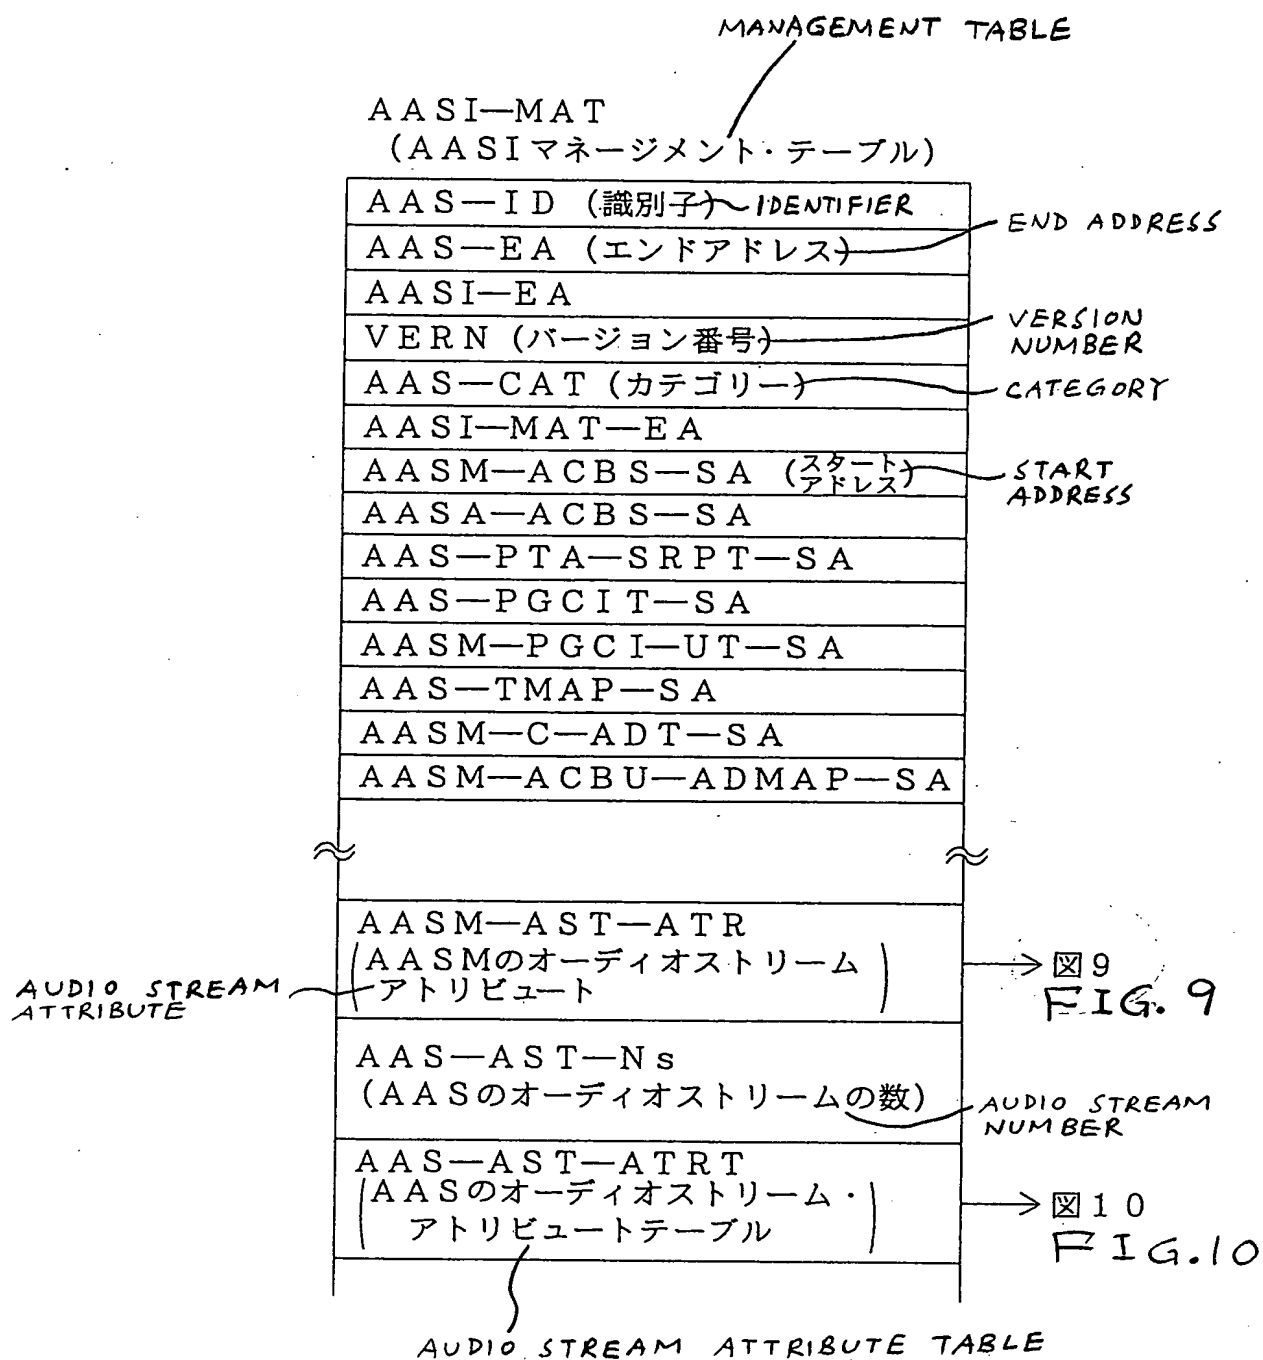 MANAGEMENT TABLE
AASI—MAT
(AASIマネージメント・テーブル)
AAS—ID (識別子) IDENTIFIER
AAS—EA (エンドアドレス)
END ADDRESS
AASI—EA
VERN (バージョン番号)
VERSION
NUMBER
AAS—CAT (カテゴリー)
CATEGORY
AASI—MAT—EA
AASM—ACBS—SA (スタート
アドレス)
START
ADDRESS
AASA—ACBS—SA
AAS—PTA—SRPT—SA
AAS—PGCIT—SA
AASM—PGCI—UT—SA
AAS—TMAP—SA
AASM—C—ADT—SA
AASM—ACBU—ADMAP—SA
AASM—AST—ATR
(AASMのオーディオストリーム
アトリビュート)
AUDIO STREAM
ATTRIBUTE
図9
FIG. 9
AAS—AST—Ns
(AASのオーディオストリームの数)
AUDIO STREAM
NUMBER
AAS—AST—ATRT
(AASのオーディオストリーム・
アトリビュートテーブル)
図10
FIG.10
AUDIO STREAM ATTRIBUTE TABLE